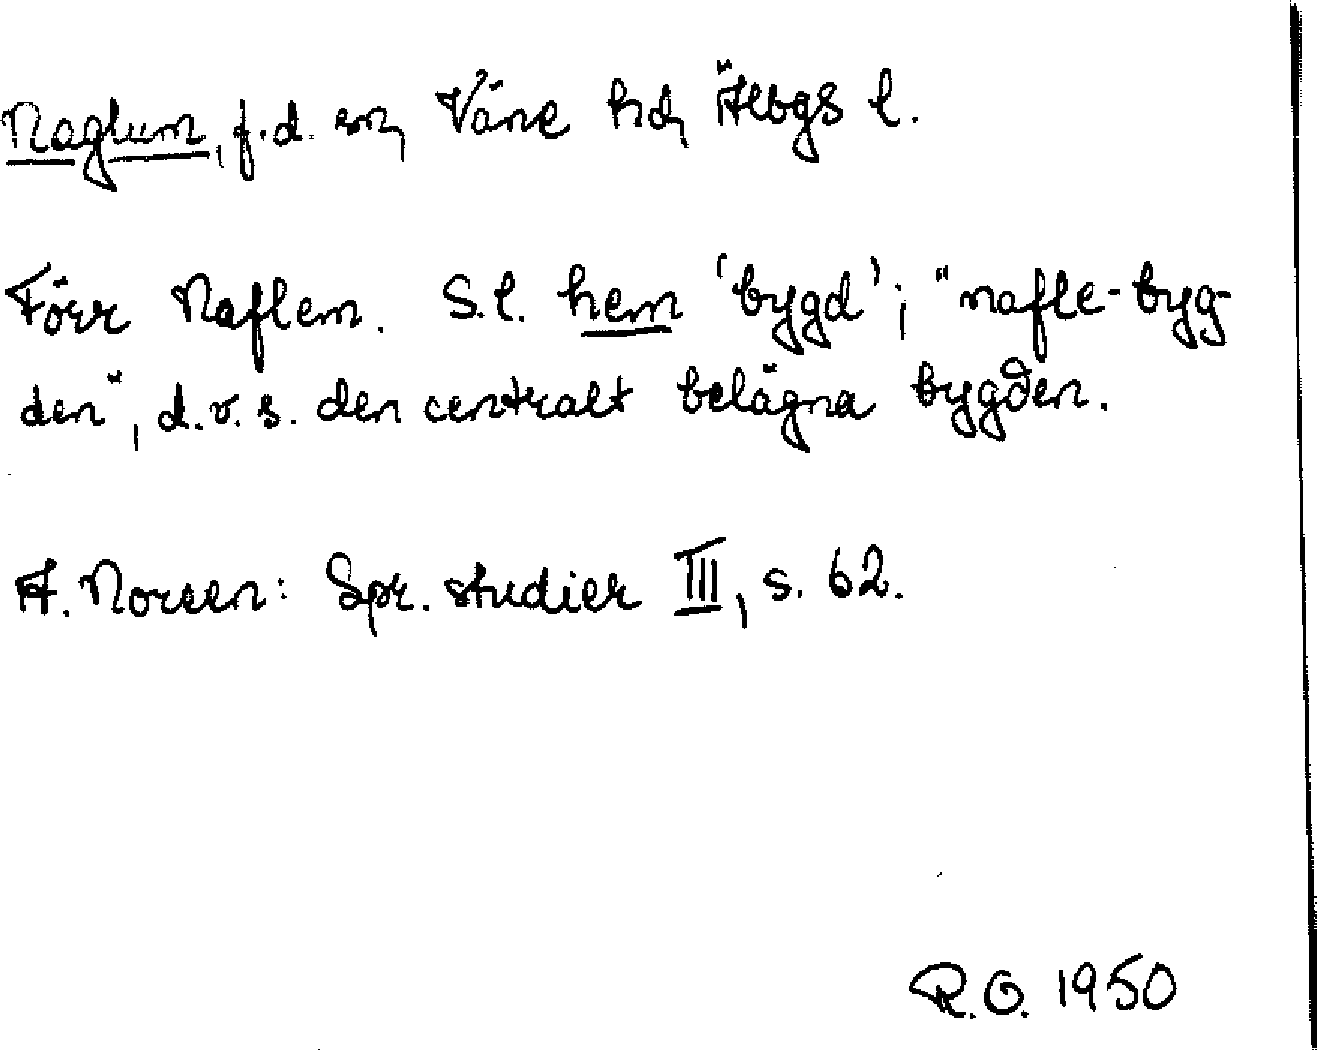 Naglum, f.d. sn, Väne hd, Älvbgs l.
Förr Naflem. S.l. hem 'bygd'; "nafle-byg-
den", d.v.s. den centralt belägna bygden.
A. Noreen: Spr. studier III, s. 62.
R.O. 1950